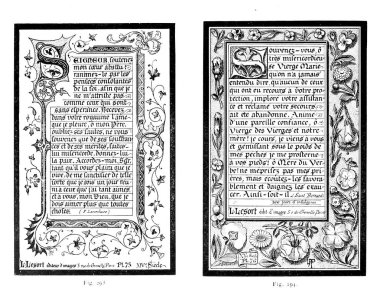 SEIGNEUR soutenez
mon cœur abattu:
ranimez-le par les
pensées consolantes
de la foi, afin que je
ne m'attriste pas
comme ceux qui sont
sans espérance. Recevez
dans votre royaume l'âme
que je pleure, ô mon Père,
oubliez ses fautes, ne vous
souvenez que de ses souffran-
ces et de ses mérites, faites-
lui miséricorde, donnez-lui
la paix. Accordez-moi, Sgr,
tant qu'il vous plaira que je
vive, de me sanctifier de telle
sorte que je sois un jour réu-
nie à ceux que j'ai tant aimés
et à vous, mon Dieu, que je
dois aimer plus que toutes
choses.
(P. Lacordaire)
L. Lesort édit. d'images 3 rue de Grenelle, Paris Pl. 75 XIVe Siècle
Fig. 292
Souvenez-vous, ô
très miséricordieu-
se Vierge Marie
qu'on n'a jamais
entendu dire, qu'aucun
de ceux qui ont eu
recours à votre pro-
tection, imploré votre assistan-
ce et réclamé votre secours
ait été abandonné. Animé
d'une pareille confiance, ô
Vierge des Vierges et notre
mère! je cours, je viens à vous
et gémissant sous le poids de
mes péchés je me prosterne
à vos pieds: ô Mère du Ver-
be! ne méprisez pas mes priè-
res, mais écoutez-les favora-
blement et daignez les exau-
cer. Ainsi-soit-il. Saint Bernard
300 jours d'indulgence
L. Lesort édit. d'images 3 r. de Grenelle Paris
Fig. 293